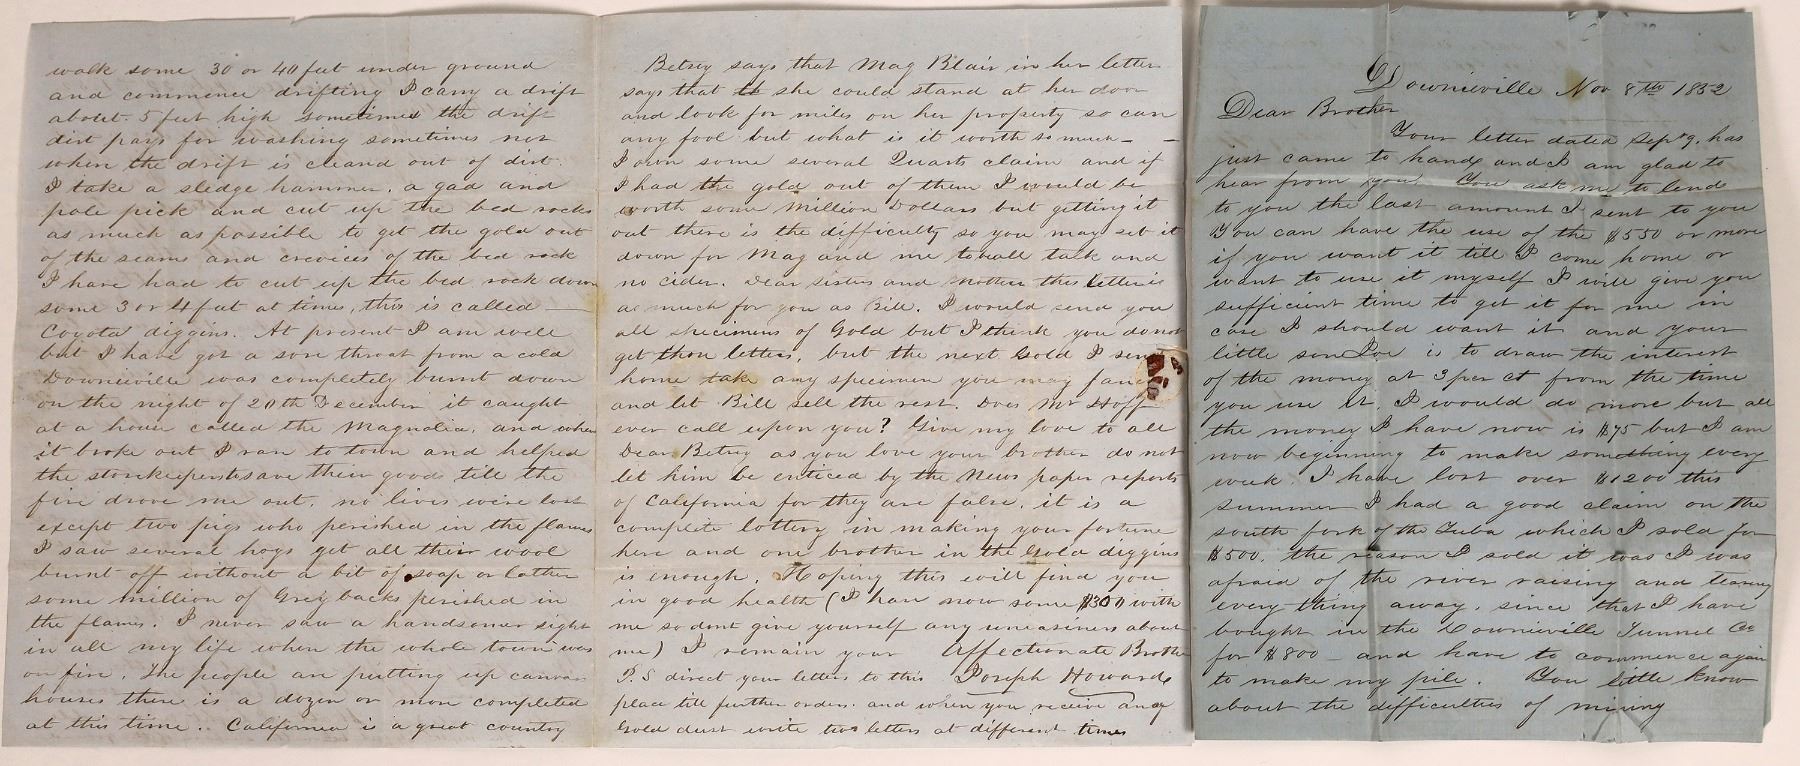 walk some 30 or 40 feet under ground
and commence drifting I carry a drift
about 5 feet high Sometimes the drift
dirt pays for washing sometimes not
when the drift is cleand out of dirt.
I take a sledge hammer. a gad and
pole pick and cut up the bed rocks
as much as possible to get the gold out
of the seams and crevices of the bed rock
I have had to cut up the bed rock down
some 3 or 4 feet at times, this is called
Coyota diggins. At present I am well
but I have got a sore throat from a cold
Downieville was completely burnt down
on the night of 20th December it caught
at a house called the Magnolia. and when
it broke out I ran to town and helped
the storekeepers to save their goods till the
fire drove me out. no lives were lost
except two pigs who perished in the flames
I saw several hogs get all their wool
burnt off without a bit of soap or lather
some million of Grey backs perished in
the flames. I never saw a handsomer sight
in all my life when the whole town was
on fire. The people are putting up canvas
houses there is a dozen or more completed
at this time.. California is a great country
Betsey says that Mag Blair in her letter
says that she could stand at her door
and look for miles on her property so can
any fool but what is it worth so much —
I own some several Quarts claim and if
I had the gold out of them I would be
worth some Million Dollars but getting it
out there is the difficulty so you may set it
down for Mag and me to be all talk and
no cider. Dear sisters and Mother this letter is
as much for you as Bill. I would send you
all specimens of Gold but I think you do not
get those letters. but the next Gold I send
home take any specimen you may
and let Bill sell the rest. Does Mr Hoff
ever call upon you? Give my love to all
Dear Betsey as you love your brother do not
let him be enticed by the News paper reports
of California for they are false. it is a
complete lottery in making your fortune
here and one brother in the Gold diggins
is enough. Hoping this will find you
in good health (I have now some $300 with
me so dont give yourself any uneasiness about
me) I remain your Affectionate Brother
P.S direct your letters to this Joseph Howard
place till further orders. and when you receive any
Gold dust write two letters at different times
Downieville Nov 8th 1852
Dear Brother
Your letter dated Sept 9. has
just came to hand and I am glad to
hear from you. You ask me to lend
to you the last amount I sent to you
You can have the use of the $550 or more
if you want it till I come home or
want to use it myself I will give you
sufficient time to get it for me in
case I should want it and your
little son Joe is to draw the interest
of the money at 3 per ct from the time
you use it. I would do more but all
the money I have now is $75 but I am
now beginning to make something every
week I have lost over $1200 this
summer I had a good claim on the
south fork of the Yuba which I sold for
$500. the reason I sold it was I was
afraid of the river raising and tearing
every thing away. since that I have
bought in the Downieville Tunnel Co
for $800 — and have to commence again
to make my pile. You little know
about the difficulties of mining